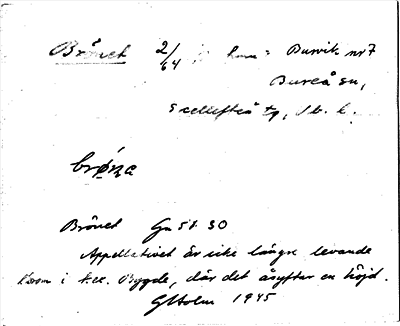 Brånet 2/64 hem: Burvik nr 7
Bureå sn,
Skellefteå tg, Vb. l.
Brånet Gu 5:1 30
Appellativet är icke längre levande
inom i t.ex. Bygde, där det åsyftar en höjd.
GHolm 1945